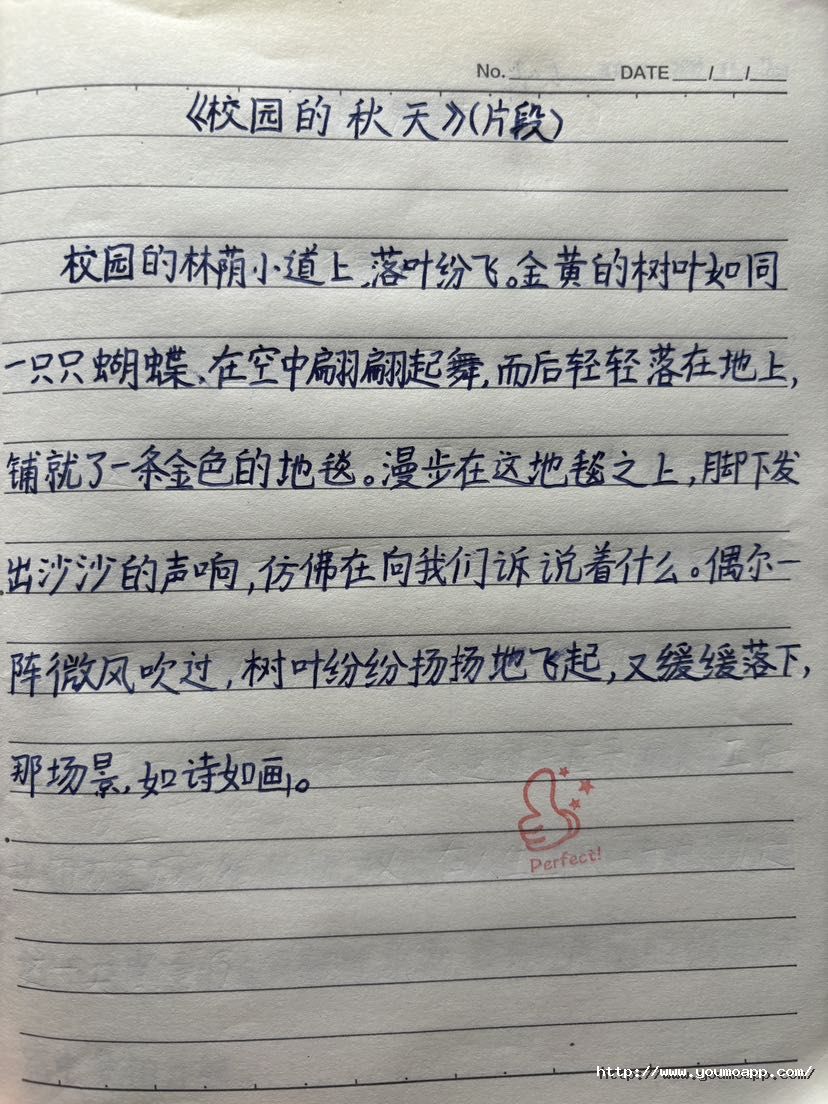 No. DATE / /
《校园的秋天》(片段)
校园的林荫小道上,落叶纷飞。金黄的树叶如同
一只只蝴蝶、在空中翩翩起舞,而后轻轻落在地上,
铺就了一条金色的地毯。漫步在这地毯之上,脚下发
出沙沙的声响,仿佛在向我们诉说着什么。偶尔一
阵微风吹过,树叶纷纷扬扬地飞起,又缓缓落下,
那场景,如诗如画。
Perfect!
http://www.youmoapp.com/